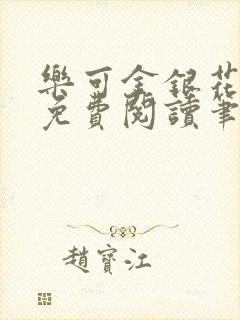 樂可金銀花
免費閱讀筆
趙寶江